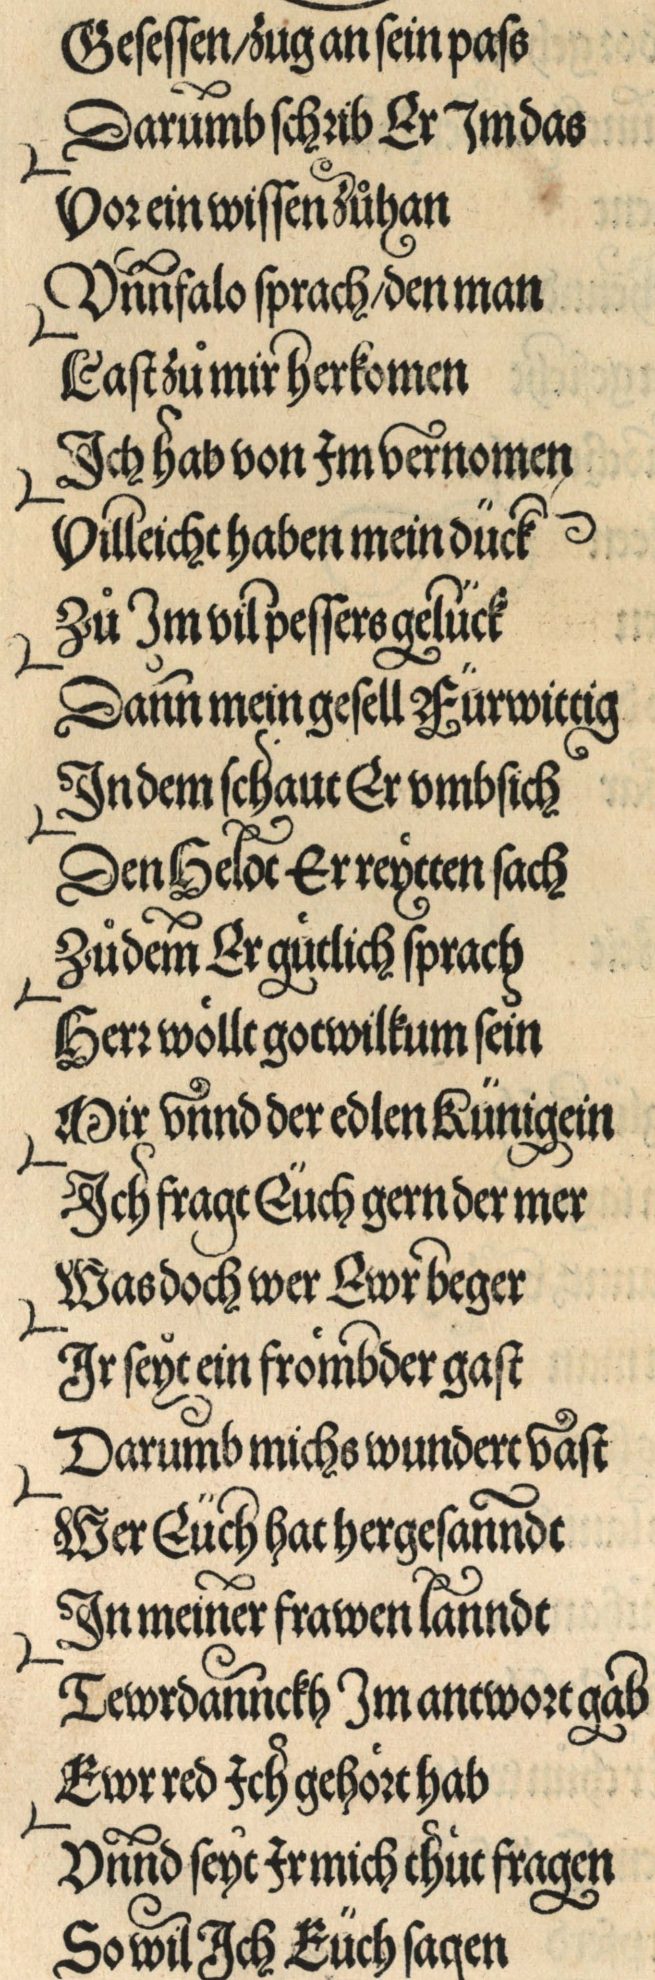 Gesessen/zug an sein pass
Darumb schrib Er Im das
Vor ein wissen zůhan
Vnnfalo sprach/den man
Last zů mir herkomen
Ich hab von Im vernomen
Villeicht haben mein dück
Zů Im vil pessers gelück
Dann mein gesell Fürwittig
In dem schaut Er vmbsich
Den Heldt Er reytten sach
Zůdem Er gütlich sprach
Herr wöllt gotwilkum sein
Mir vnnd der edlen Künigein
Ich fragt Eüch gern der mer
Was doch wer Ewr beger
Ir seyt ein frömbder gast
Darumb michs wundert vast
Wer Eüch hat hergesanndt
In meiner frawen lanndt
Tewrdannckh Im antwort gab
Ewr red Ich gehört hab
Vnnd seyt Ir mich thüt fragen
So wil Ich Eüch sagen